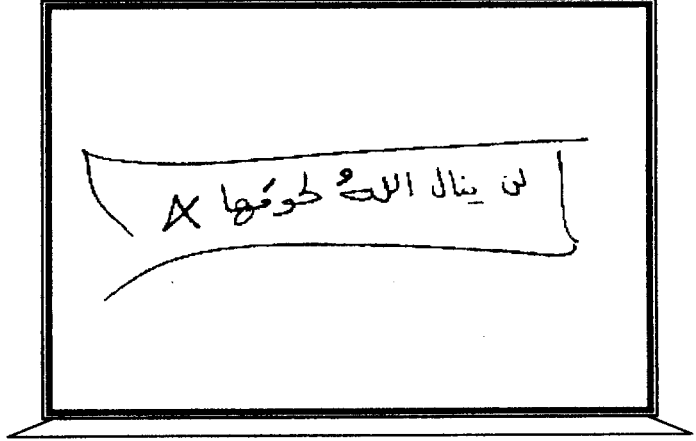 لن ينال اللهُ لحومَها X